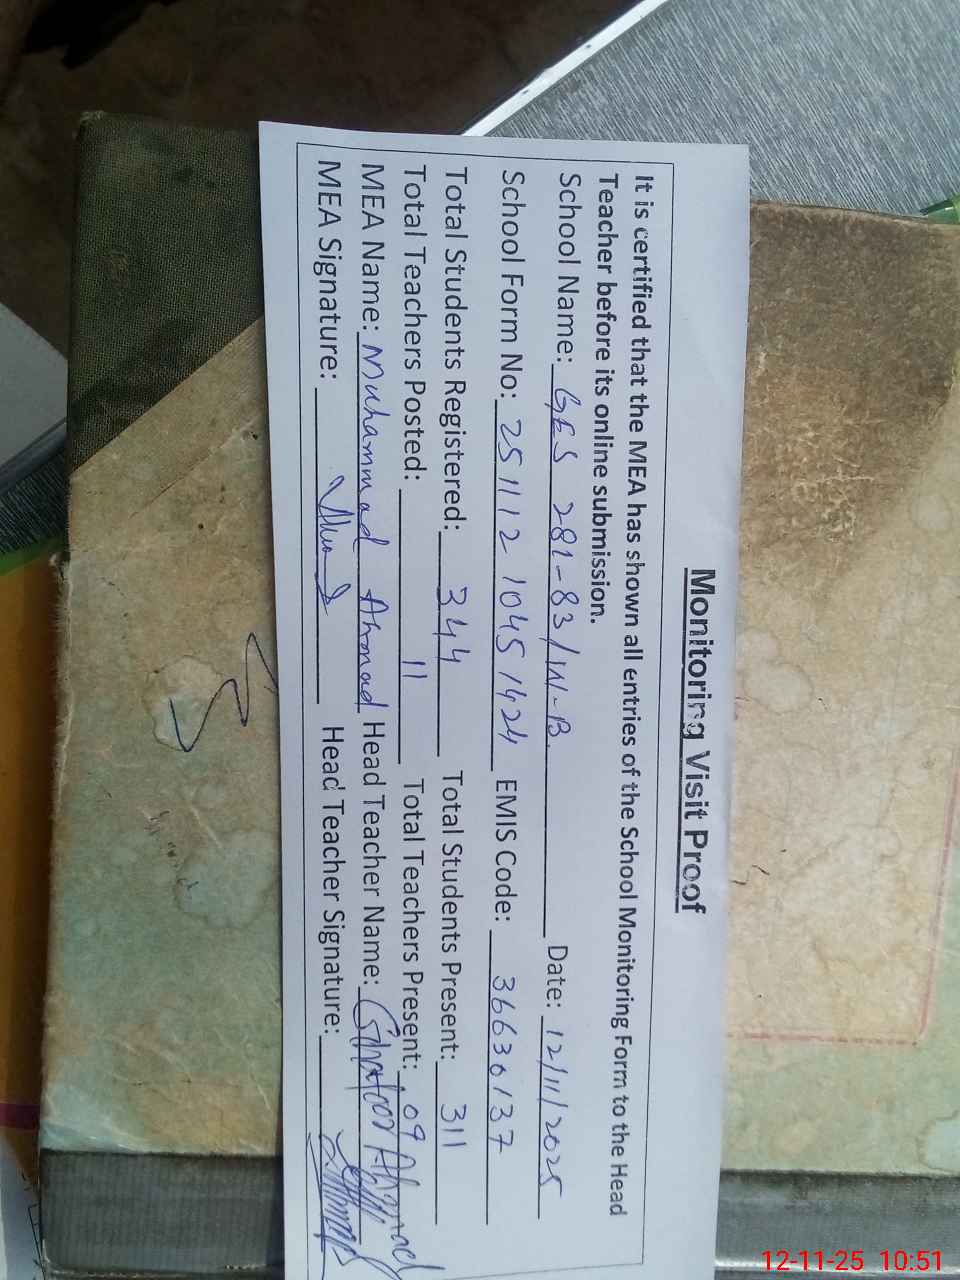 Monitoring Visit Proof
It is certified that the MEA has shown all entries of the School Monitoring Form to the Head
Teacher before its online submission.
School Name: GES 281-83/W-B. Date: 12/11/2025
School Form No: 25 11 12 1045 1424 EMIS Code: 36630137
Total Students Registered: 344 Total Students Present: 311
Total Teachers Posted: 11 Total Teachers Present: 09
MEA Name: Muhammad Ahmad Head Teacher Name: Ghafoor Ahmad
MEA Signature: Head Teacher Signature:
12-11-25 10:51